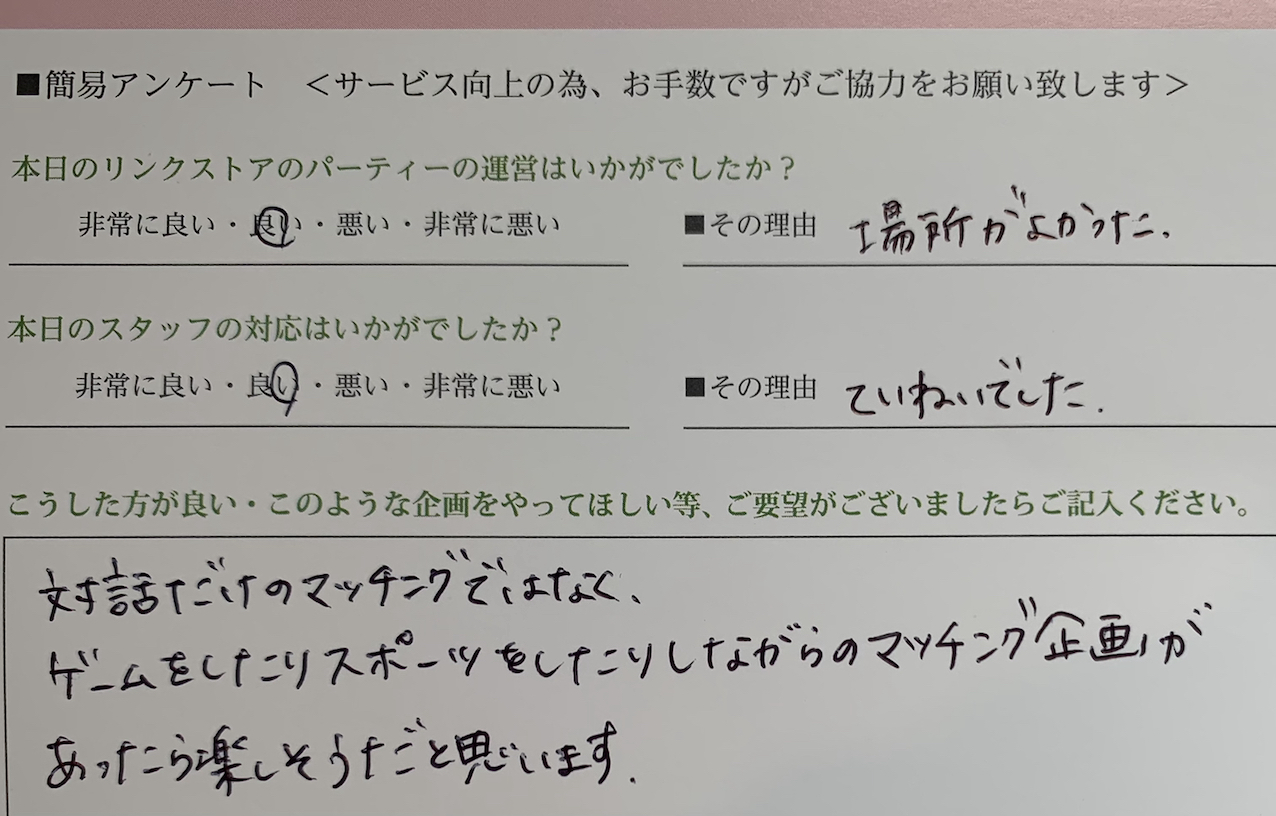 ■簡易アンケート ＜サービス向上の為、お手数ですがご協力をお願い致します＞
本日のリンクストアのパーティーの運営はいかがでしたか？
非常に良い・良い・悪い・非常に悪い ■その理由 場所がよかった.
本日のスタッフの対応はいかがでしたか？
非常に良い・良い・悪い・非常に悪い ■その理由 ていねいでした.
こうした方が良い・このような企画をやってほしい等、ご要望がございましたらご記入ください。
対話だけのマッチングではなく、
ゲームをしたりスポーツをしたりしながらのマッチング企画が
あったら楽しそうだと思います.